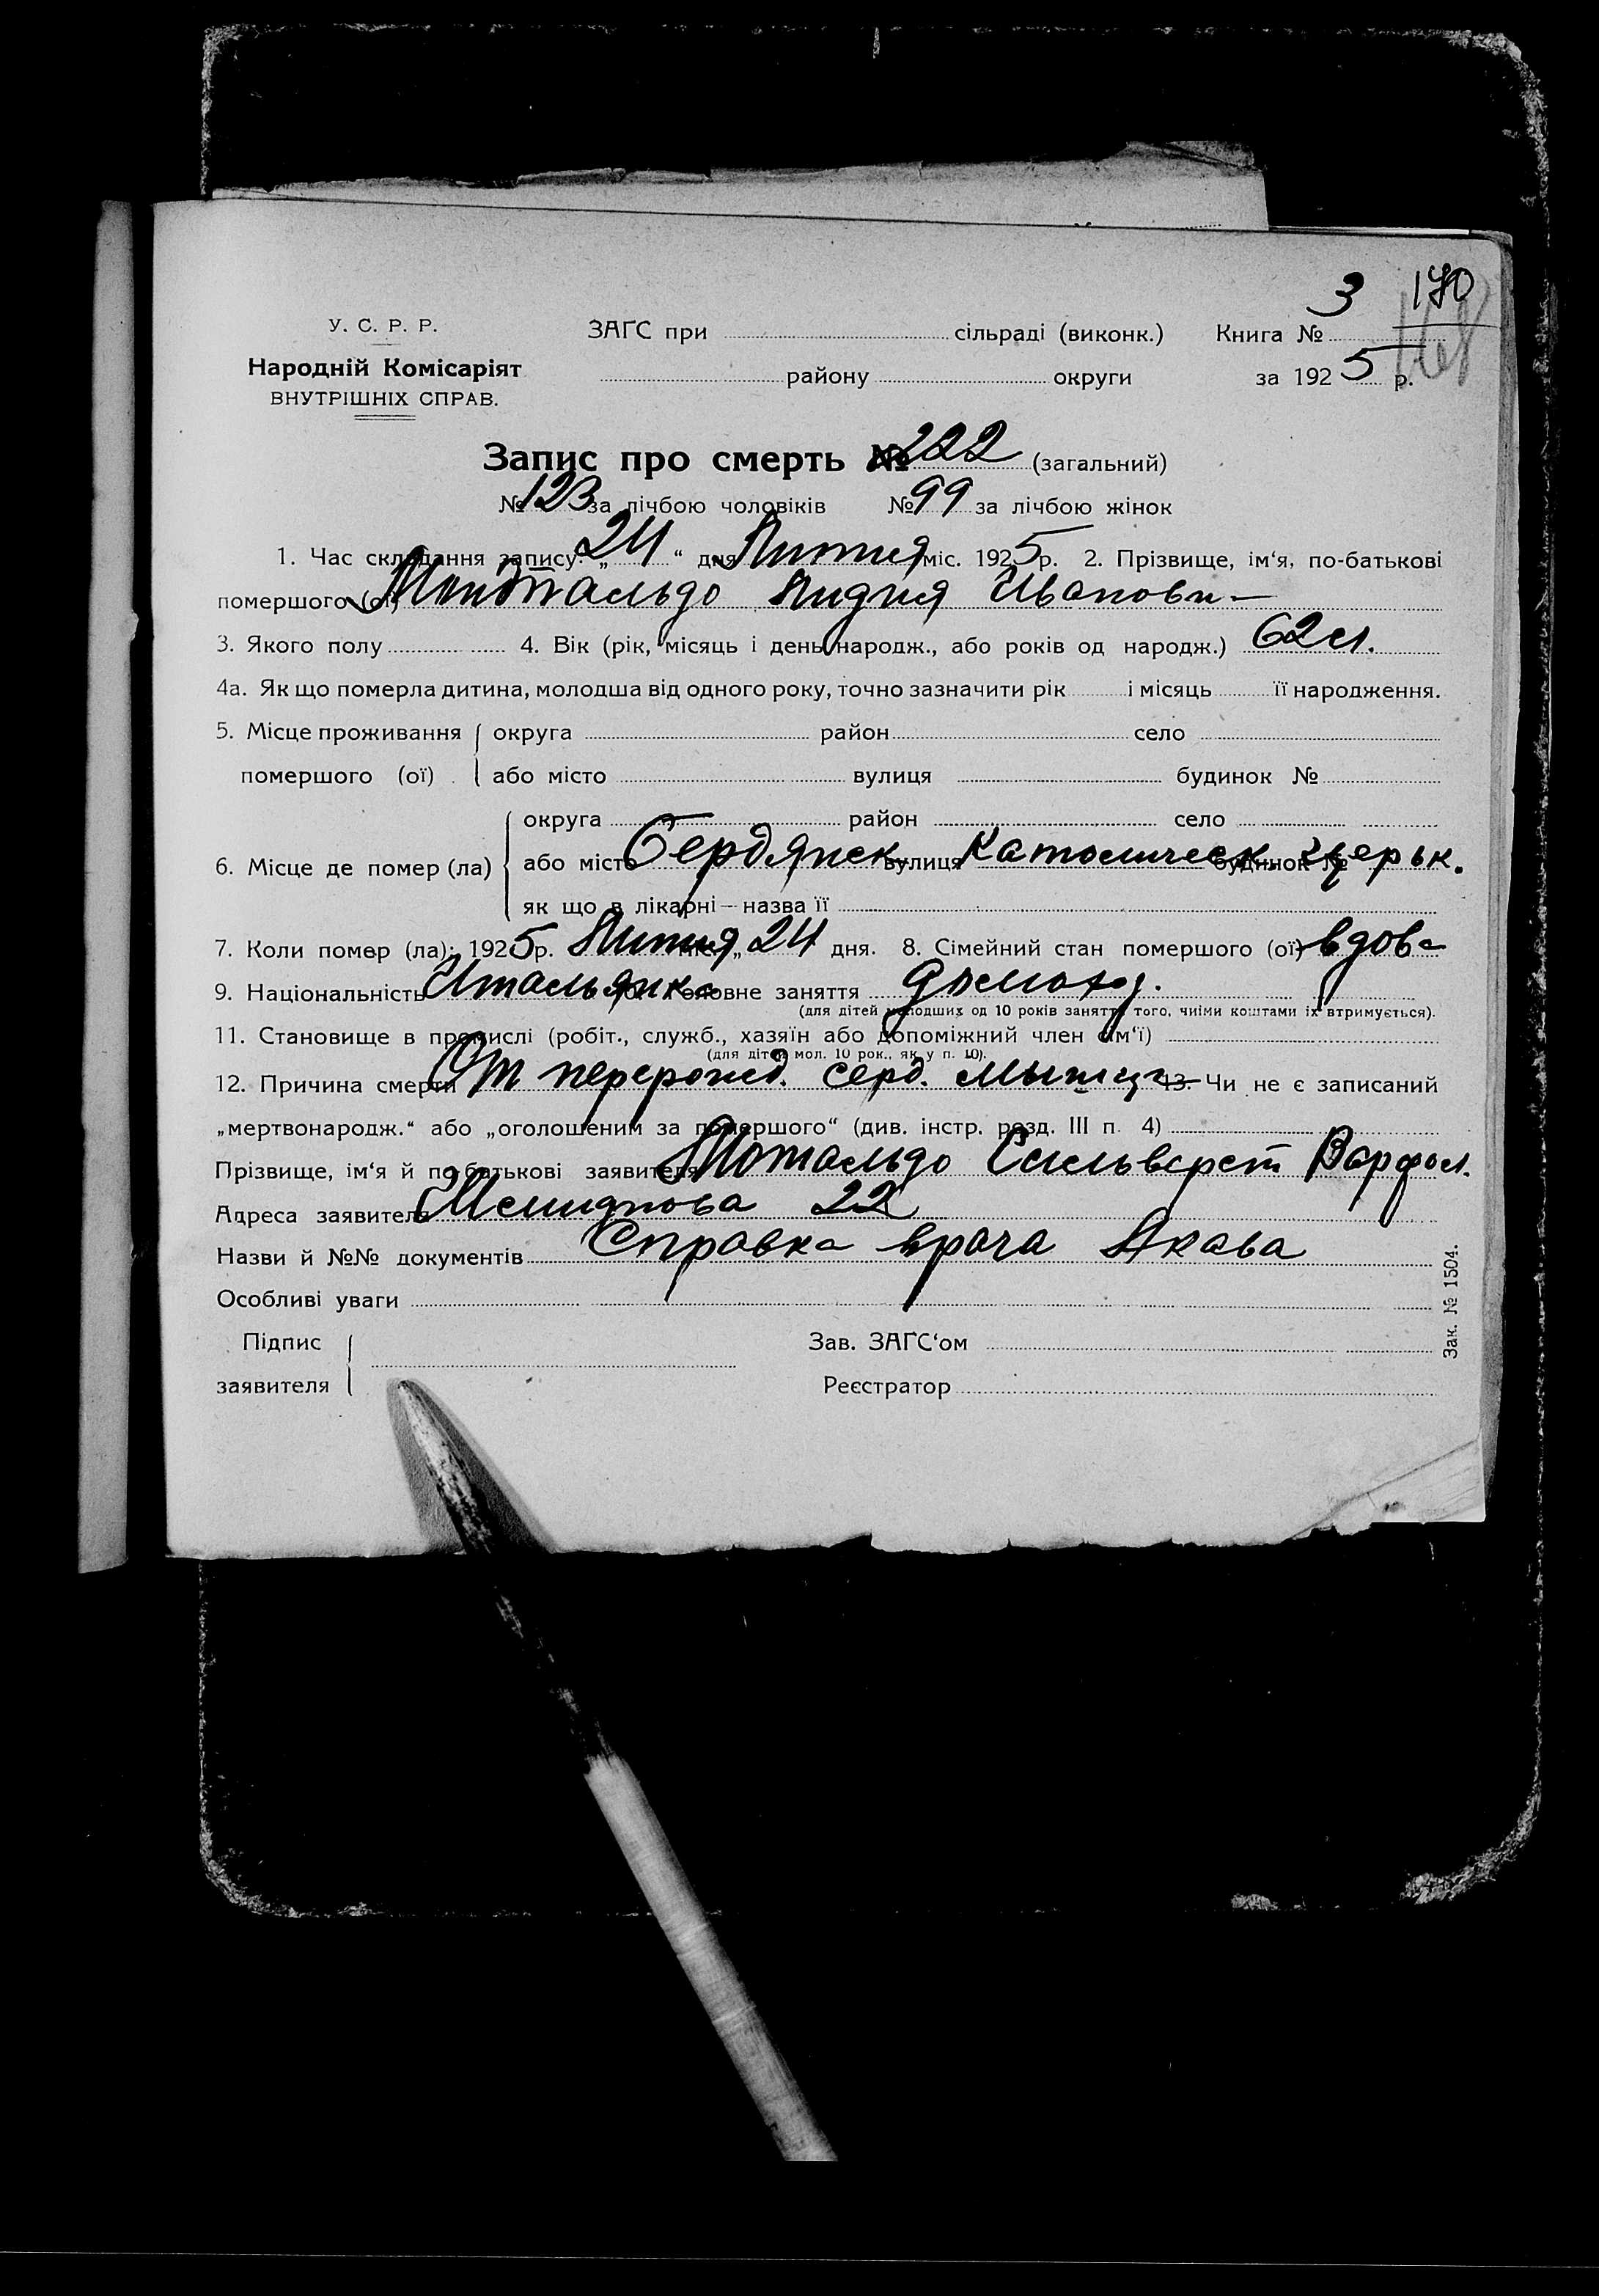 3 170
168
У. С. Р. Р. ЗАҐС при сільраді (виконк.) Книга №
Народній Комісаріят
ВНУТРІШНІХ СПРАВ.
району округи за 1925 р.
Запис про смерть № 222 (загальний)
№ 123 за лічбою чоловіків № 99 за лічбою жінок
1. Час складання запису: „24“ дня Липня міс. 1925 р. 2. Прізвище, ім‘я, по-батькові
помершого (ої) Лидия Ивановн
3. Якого полу 4. Вік (рік, місяць і день народж., або років од народж.) 62 л.
4а. Як що померла дитина, молодша від одного року, точно зазначити рік і місяць її народження.
5. Місце проживання округа район село
помершого (ої) або місто вулиця будинок №
округа район село
6. Місце де помер (ла) або місто Бердянск вулиця Католическ. будинок № церьк.
як що в лікарні — назва її
7. Коли помер (ла): 1925 р. Липня міс. „24 дня. 8. Сімейний стан помершого (ої) вдова
9. Національність Итальянка 10. Головне заняття домохоз.
(для дітей молодших од 10 років заняття того, чиїми коштами їх втримується).
11. Становище в промислі (робіт., служб., хазяїн або допоміжний член сім‘ї)
(для дітей мол. 10 рок., як у п. 10).
12. Причина смерти От перерожд. серд. мышцы 13. Чи не є записаний
„мертвонародж.“ або „оголошеним за помершого“ (див. інстр. розд. III п. 4)
Прізвище, ім‘я й по-батькові заявителя Сильверст Варфол.
Адреса заявителя 22
Назви й №№ документів Справка врача Акава
Особливі уваги
Підпис Зав. ЗАҐС‘ом
заявителя Реєстратор
Зак. № 1504.